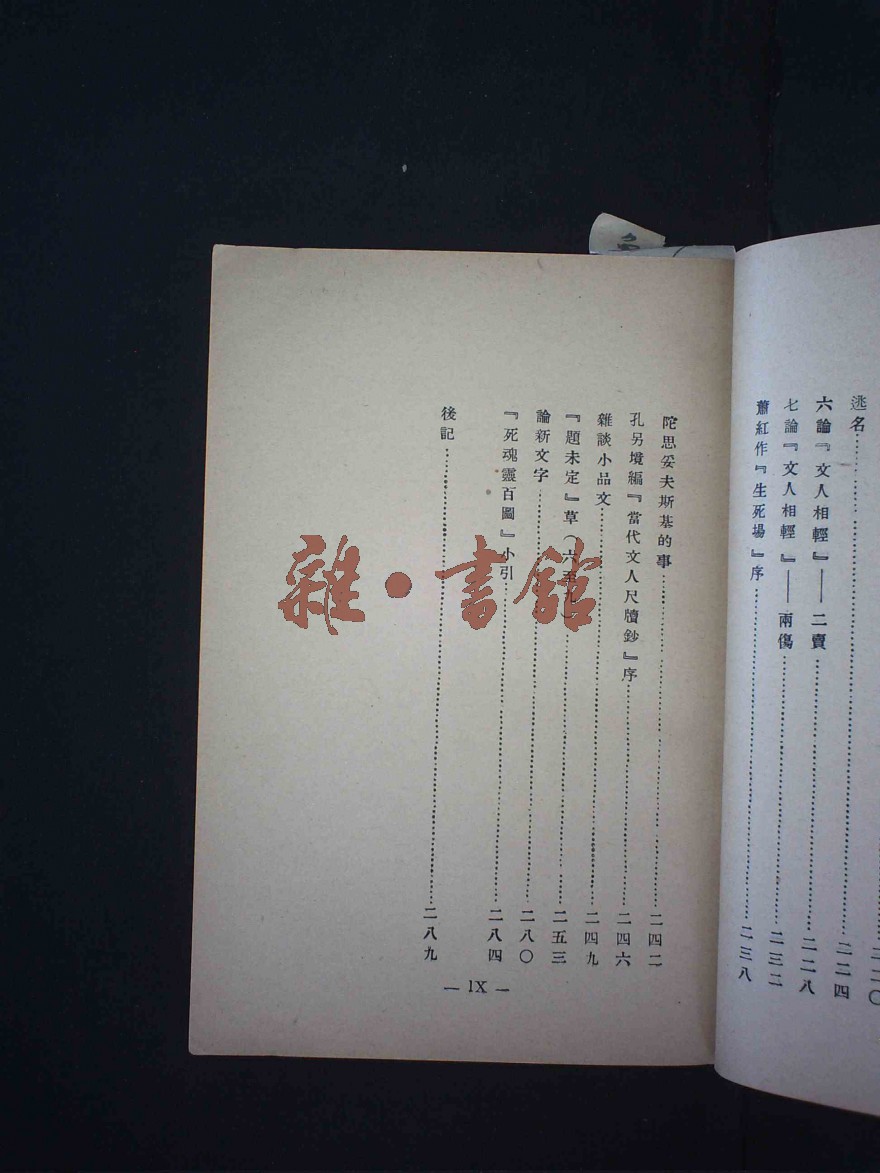 逃名……………………二二四
六論『文人相輕』——二賣……………………二二八
七論『文人相輕』——兩傷……………………二三二
蕭紅作『生死場』序……………………二三八
陀思妥夫斯基的事……………………二四二
孔另境編『當代文人尺牘鈔』序……………………二四六
雜談小品文……………………二四九
『題未定』草(六至九)……………………二五三
論新文字……………………二八〇
『死魂靈百圖』小引……………………二八四
後記……………………二八九
— IX —
雜·書館